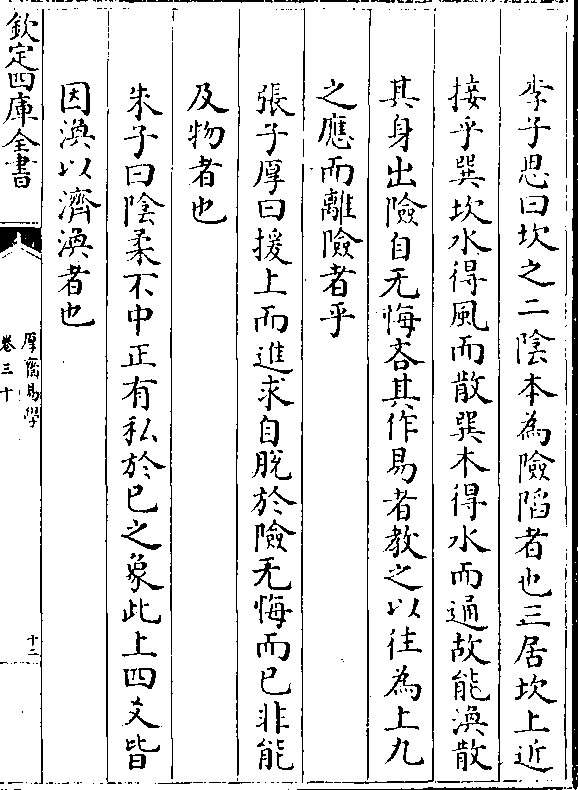 李子思曰坎之二陰本為險陷者也三居坎上近
接乎巽坎水得風而散巽木得水而通故能渙散
其身出險自无悔吝其作易者教之以往為上九
之應而離險者乎
張子厚曰援上而進求自脫於險无悔而已非能
及物者也
朱子曰陰柔不中正有私於已之象此上四爻皆
因渙以濟渙者也
欽定四庫全書
厚齋易學
卷三十
十二